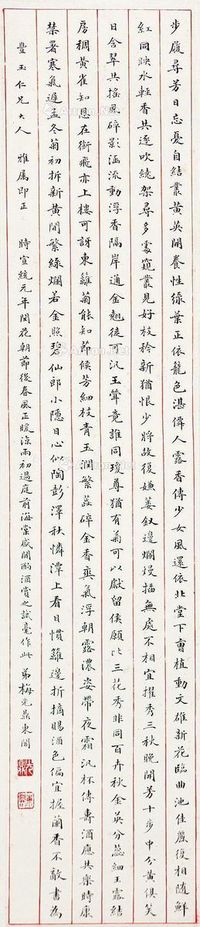 步履尋芳日忘憂自結叢黃英開養性綠葉正依籠色湛倖人露香傳少女風還依北堂下曹植動文雄新花臨曲池佳麗復相隨鮮
紅同映水輕香共逐吹繞架尋多處窺叢見好枝矜新猶恨少將故復嫌萎釵邊爛熳插無處不相宜擢秀三秋晚開芳十步中分黃俱笑
日含翠共搖風碎影涵流動浮香隔岸通金翹徒可汎玉斝竟誰同瓊尊猶有氣可以獻留侯願比三花秀非同百卉秋金英分蕊細玉露結
房稠黃雀知恩在銜飛亦上樓可訝東籬菊能知節候芳細枝青玉潤繁蕊碎金香爽氣浮朝露濃姿帶夜霜汎杯傳壽酒應共樂時康
禁署寒氣遲孟冬菊初拆新黃間繁綠爛若金照碧仙郎小隱日心似陶彭澤秋憐潭上看日慣籬邊折摘賜酒色偏宜握蘭香不敵書為
豐玉仁兄大人 雅屬即正 時宣統元年閏花朝節後春風正暖涼雨初過庭前海棠盛開酌酒賞之試毫作此 弟梅